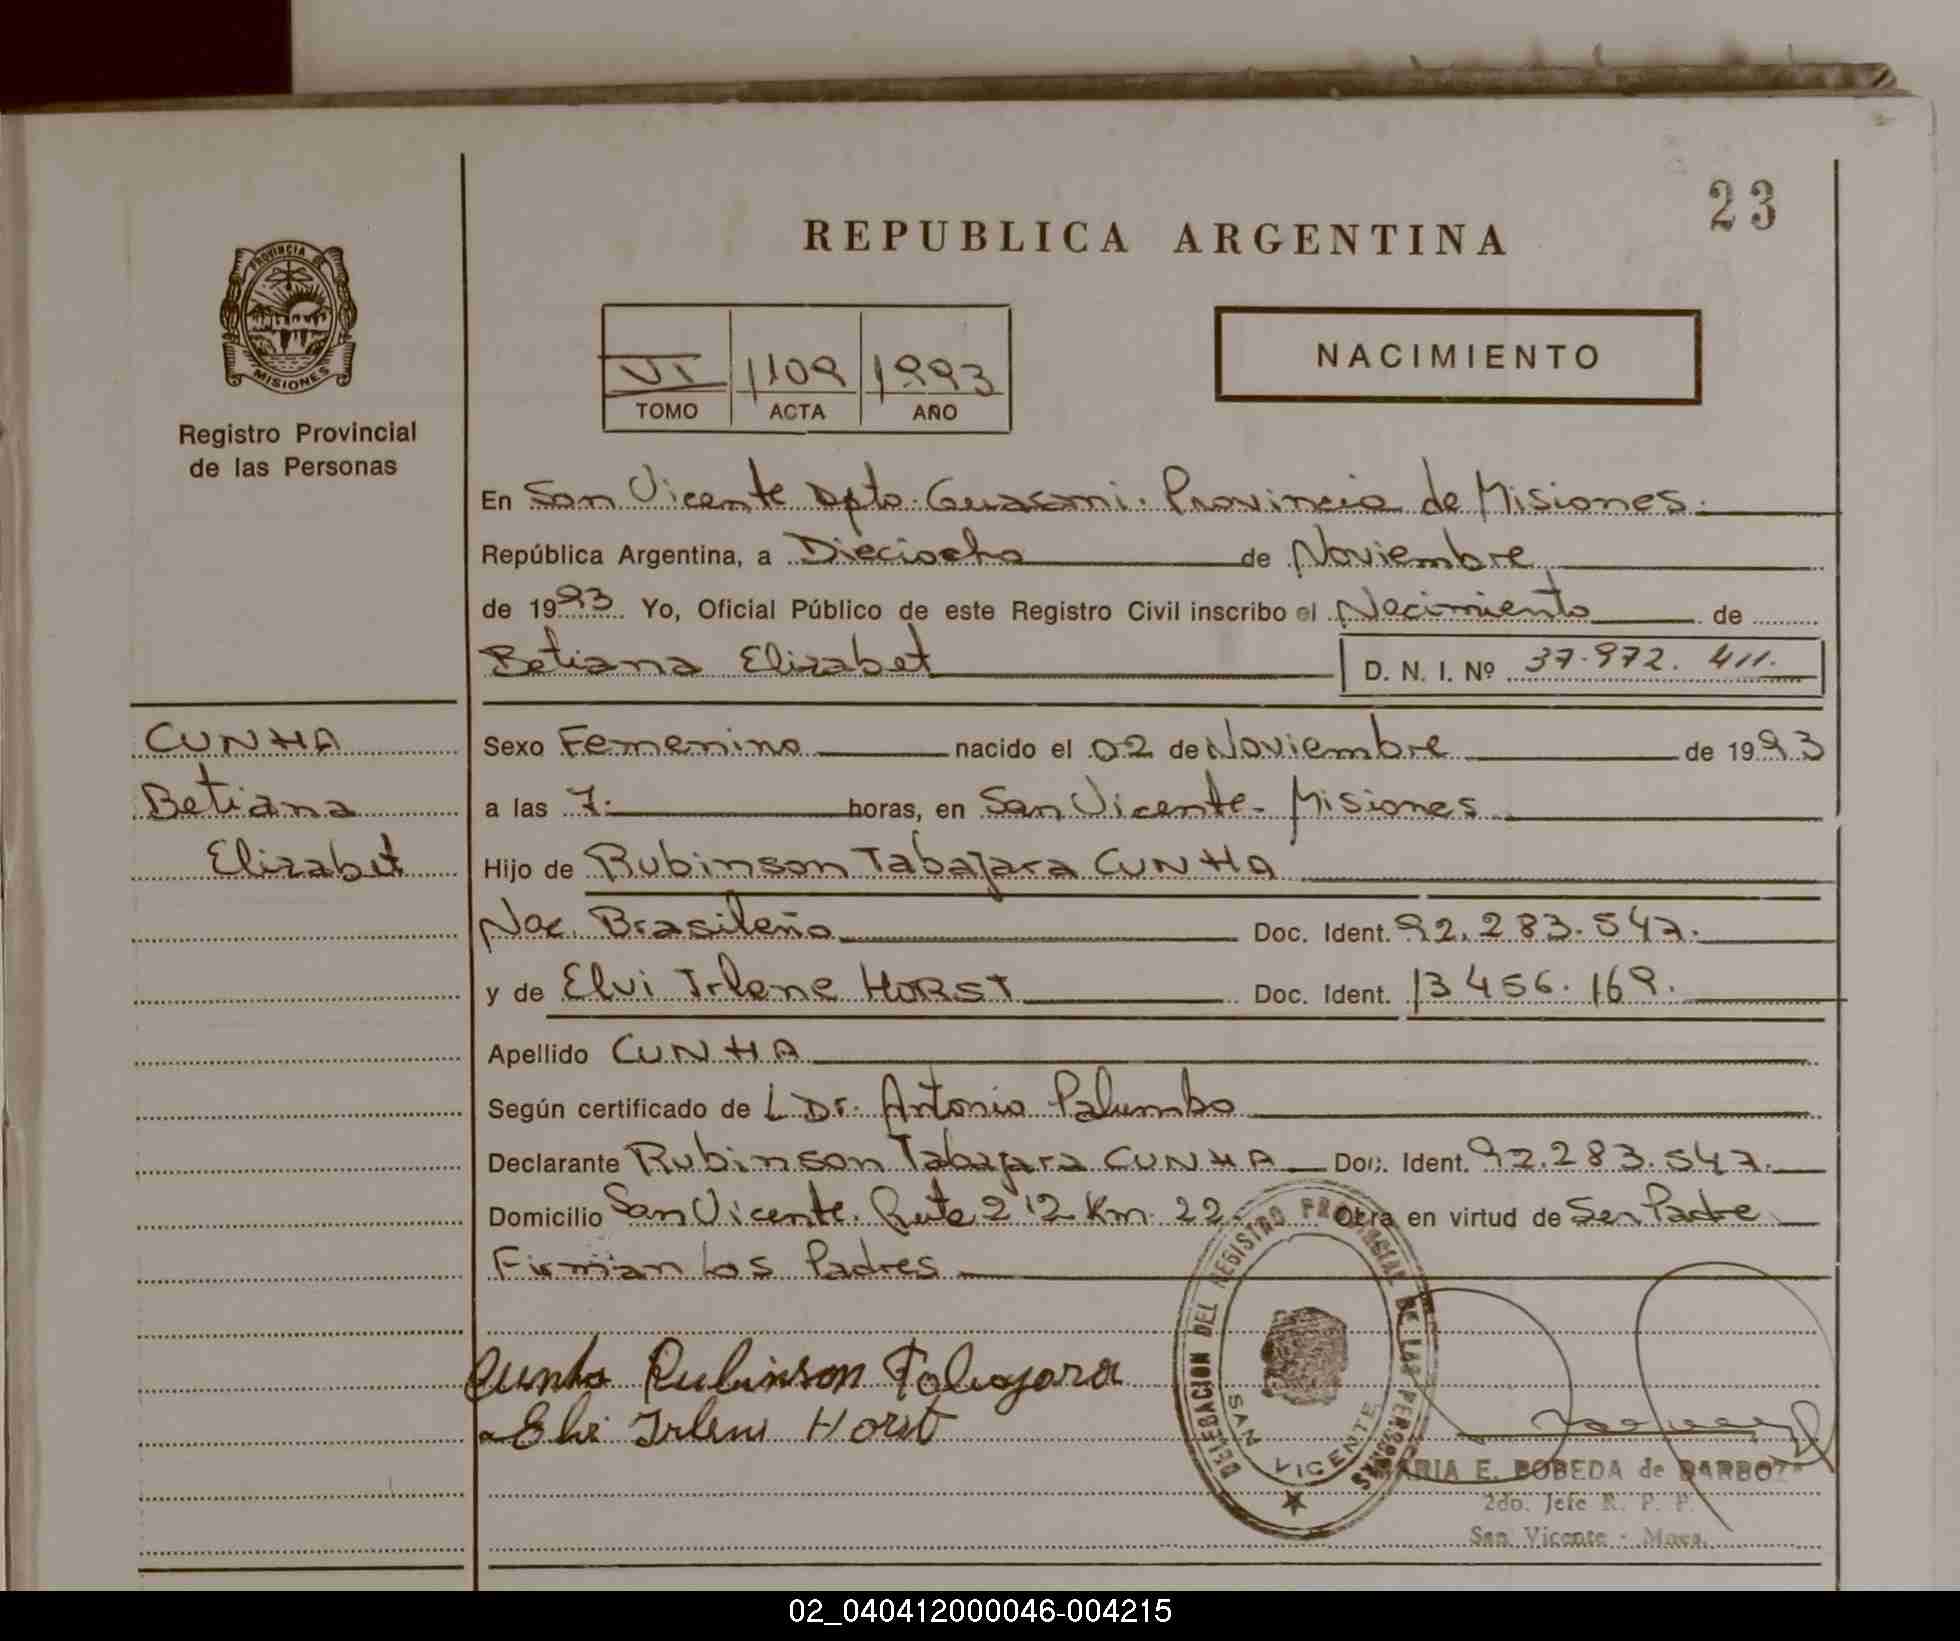 23
REPUBLICA ARGENTINA
PROVINCIA DE
MISIONES
Registro Provincial
de las Personas
VI 1109 1993
TOMO ACTA AÑO
NACIMIENTO
En San Vicente Dpto. Guarani. Provincia de Misiones.
República Argentina, a Dieciocho de Noviembre
de 1993. Yo, Oficial Público de este Registro Civil inscribo el Nacimiento de
Betiana Elizabet
D. N. I. Nº 37.972.411.
CUNHA
Betiana
Elizabet
Sexo Femenino nacido el 02 de Noviembre de 1993
a las 7. horas, en San Vicente - Misiones
Hijo de Rubinson Tabajara CUNHA
Nac. Brasileño Doc. Ident. 92.283.547.
y de Elvi Irlene HORST Doc. Ident. 13456.169.
Apellido CUNHA
Según certificado de L Dr. Antonio Palumbo
Declarante Rubinson Tabajara CUNHA Doc. Ident. 92.283.547.
Domicilio San Vicente. Ruta 212 Km. 22. Obra en virtud de Ser Padre
Firman los Padres
Cunha Rubinson Tabajara
Elvi Irleni Horst
DELEGACION DEL REGISTRO PROVINCIAL DE LAS PERSONAS
SAN VICENTE
MARIA E. BOBEDA de BARBOZA
2do. Jefe R. P. P.
San Vicente - Mnes.
02_040412000046-004215